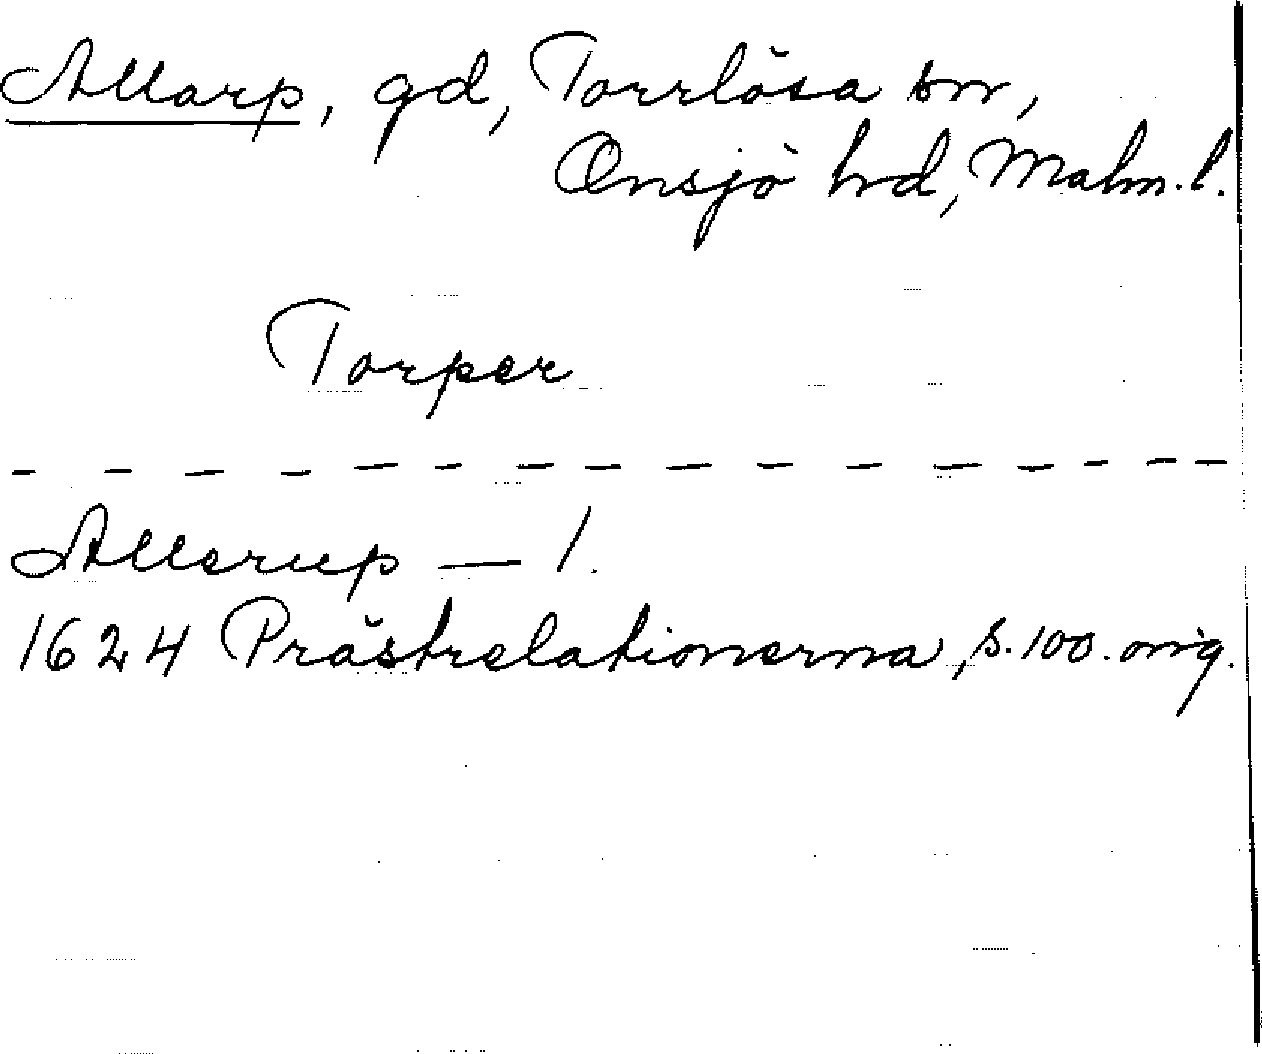 Allarp, gd, Torrlösa sn,
Onsjö hd, Malm. l.
Torper
Allerup — 1.
1624 Prästrelationerna, s. 100. orig.